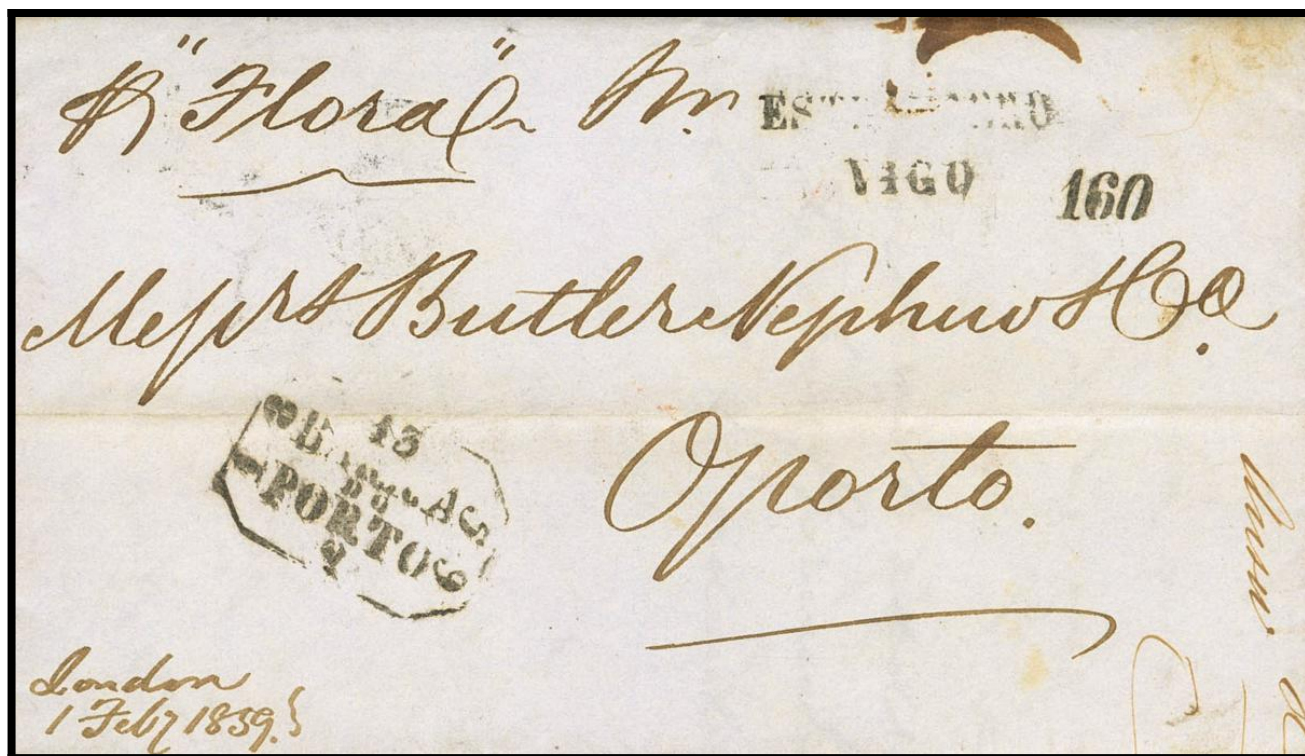 "Flora"
VIGO
160
Messrs Butler Nephew & Co.
Oporto.
13
PORTO
London
1 Feby 1839.